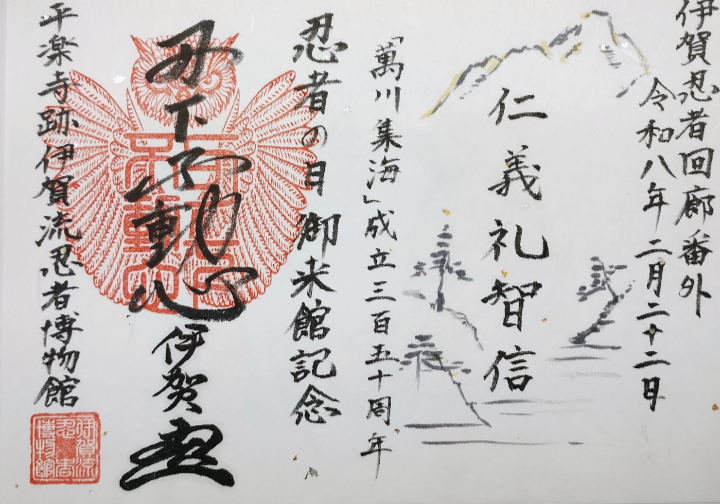 伊賀忍者回廊番外
令和八年二月二十二日
仁義礼智信
「萬川集海」成立三百五十周年
忍者の日御来館記念
刃下不動心
伊賀
平楽寺跡伊賀流忍者博物館
伊賀流
忍者
博物館